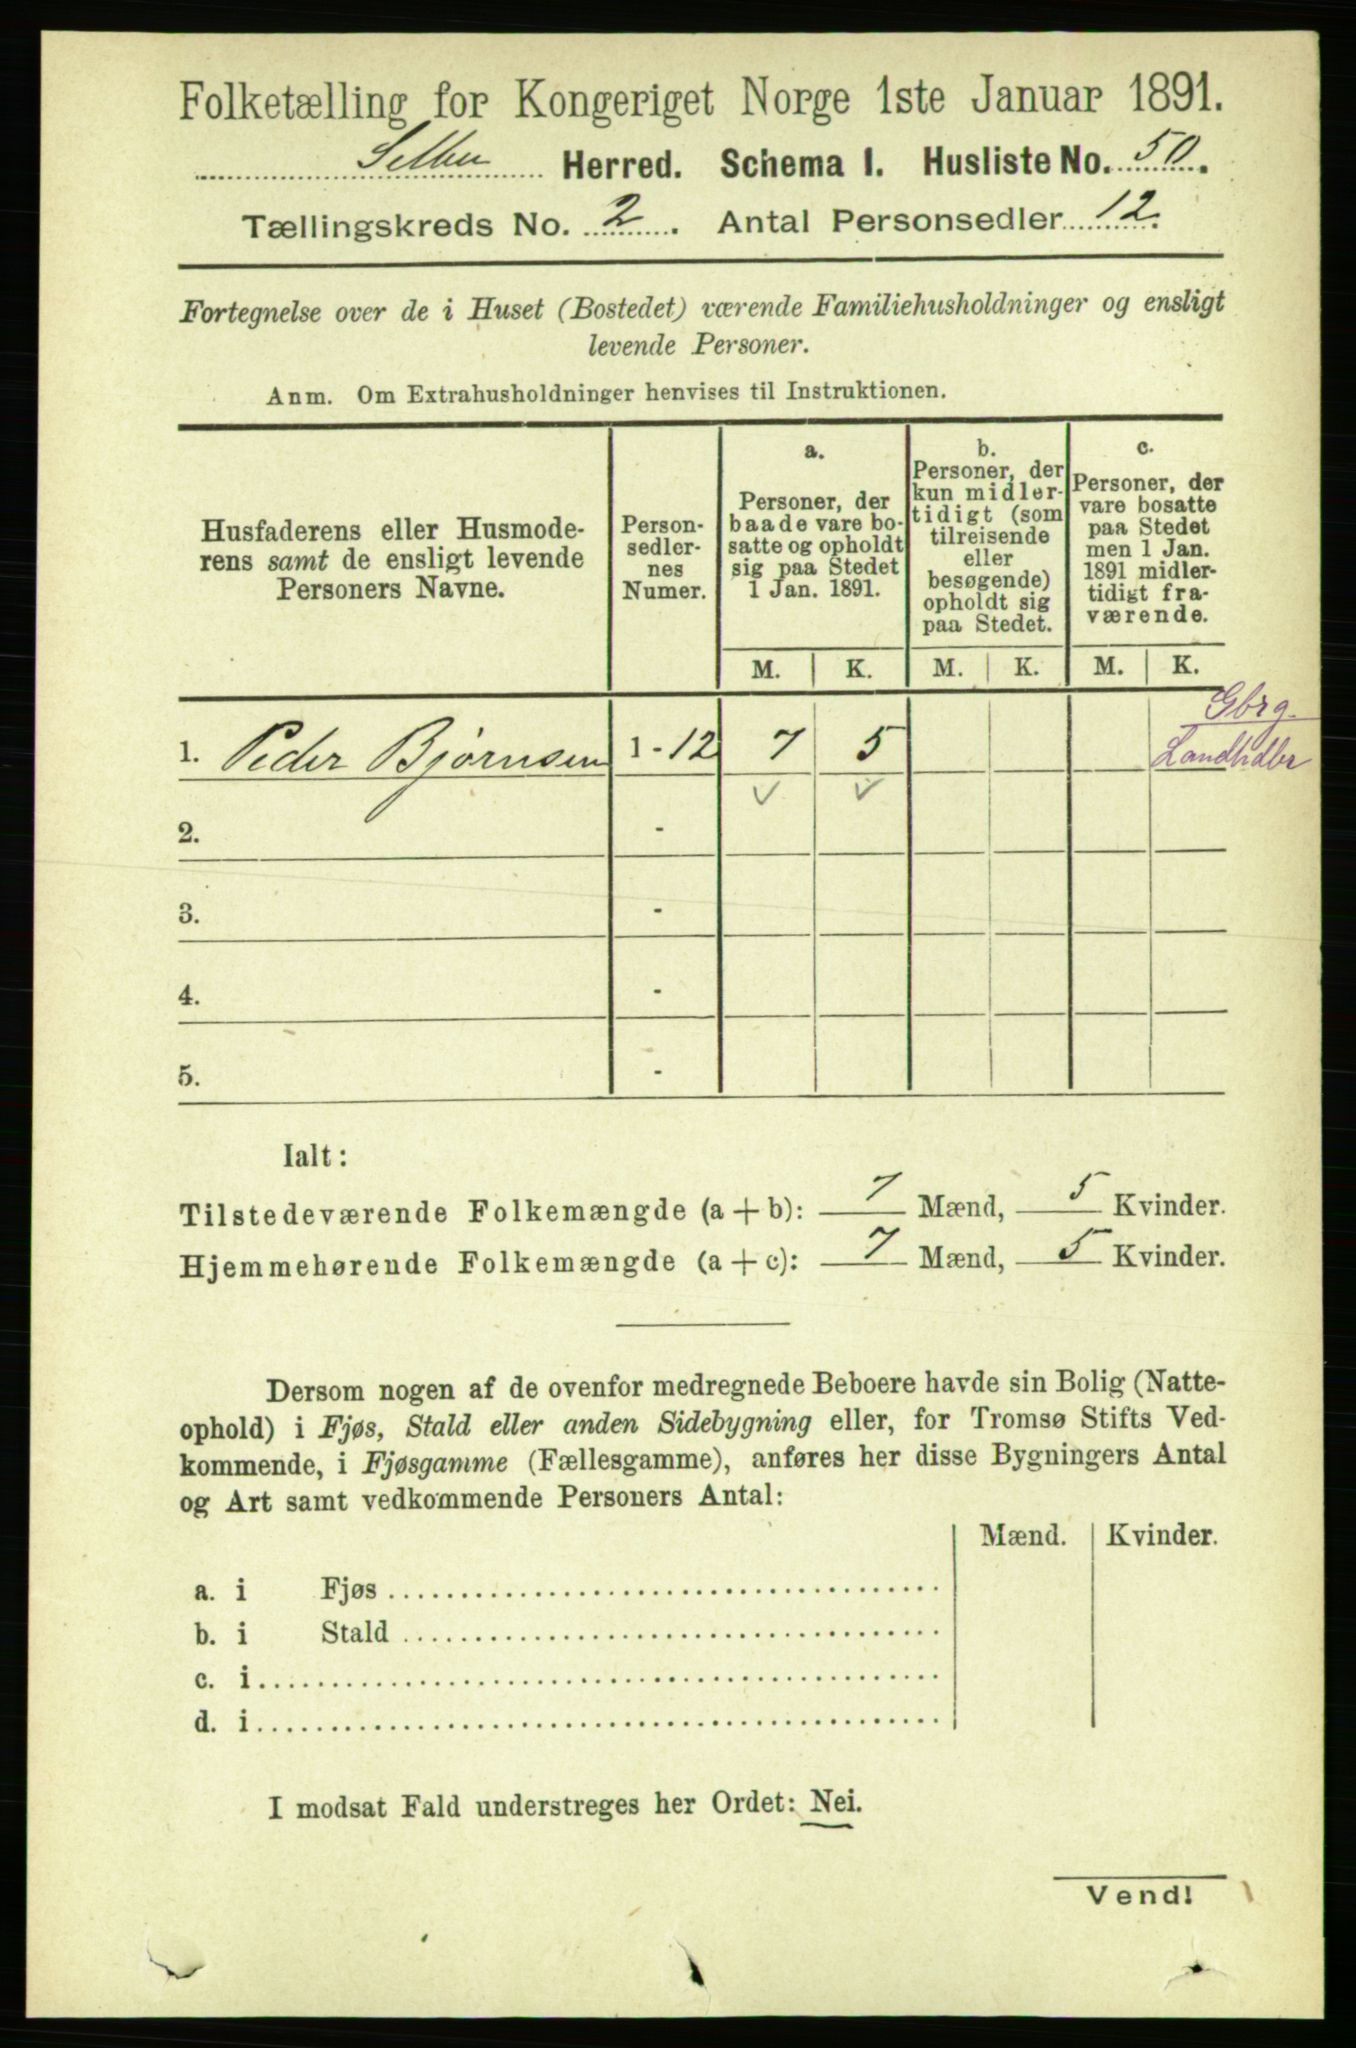 Folketælling for Kongeriget Norge 1ste Januar 1891.
Selbu Herred. Schema 1. Husliste No. 50.
Tællingskreds No. 2. Antal Personsedler 12.
Fortegnelse over de i Huset (Bostedet) værende Familiehusholdninger og ensligt
levende Personer.
Anm. Om Extrahusholdninger henvises til Instruktionen.
Husfaderens eller Husmode-
rens samt de ensligt levende
Personers Navne.
Person-
sedler-
nes
Numer.
a.
Personer, der
baade vare bo-
satte og opholdt
sig paa Stedet
1 Jan. 1891.
b.
Personer, der
kun midler-
tidigt (som
tilreisende
eller
besøgende)
opholdt sig
paa Stedet.
c.
Personer, der
vare bosatte
paa Stedet
men 1 Jan.
1891 midler-
tidigt fra-
værende.
M. K. M. K. M. K.
Gbrg.
Landhdlr
1. Peder Bjørnsen 1 - 12 7 5
2. -
3. -
4. -
5. -
Ialt:
Tilstedeværende Folkemængde (a + b): 7 Mænd, 5 Kvinder.
Hjemmehørende Folkemængde (a + c): 7 Mænd, 5 Kvinder.
Dersom nogen af de ovenfor medregnede Beboere havde sin Bolig (Natte-
ophold) i Fjøs, Stald eller anden Sidebygning eller, for Tromsø Stifts Ved-
kommende, i Fjøsgamme (Fællesgamme), anføres her disse Bygningers Antal
og Art samt vedkommende Personers Antal:
Mænd. Kvinder.
a. i Fjøs
b. i Stald
c. i
d. i
I modsat Fald understreges her Ordet: Nei.
Vend!